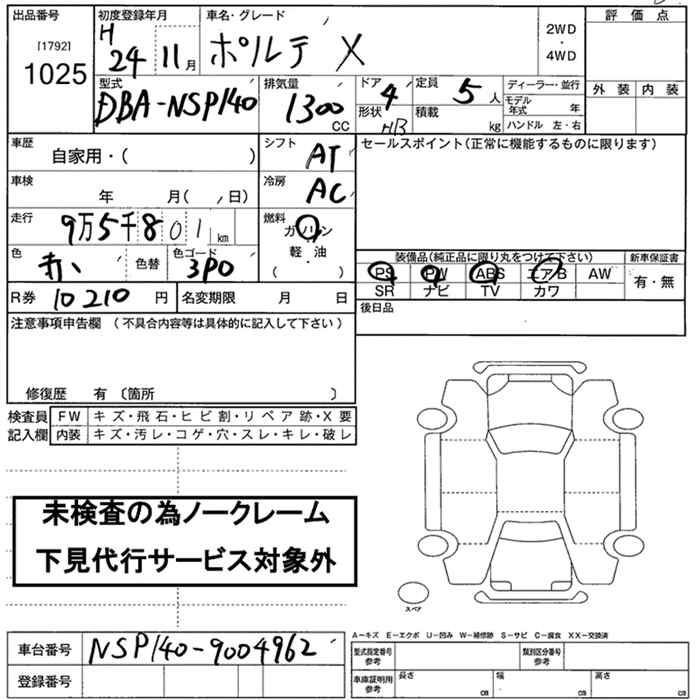 出品番号 初度登録年月 車名・グレード 評価点
[1792] H 2WD
1025 24 11月 ポルテ X ・
4WD
型式 排気量 ドア 定員 ディーラー・並行 外装 内装
DBA-NSP140 1300 CC 4 5人 モデル年式 年
形状 積載 kg ハンドル 左・右
HB
車歴 シフト セールスポイント(正常に機能するものに限ります)
自家用・( ) AT
車検 冷房
年 月( , 日) AC
走行 燃料
9万5千801 km ガソリン
軽・油
色 色コード ・
赤 色替 3P0 ( )
装備品(純正品に限り丸をつけて下さい) 新車保証書
PS PW ABS エアB AW 有・無
SR ナビ TV カワ
R券 10210 円 名変期限 月 日 後日品
注意事項申告欄 (不具合内容等は具体的に記入して下さい)
修復歴 有 〔箇所 〕
検査員 FW キズ・飛石・ヒビ割・リペア跡・X要
記入欄 内装 キズ・汚レ・コゲ・穴・スレ・キレ・破レ
未検査の為ノークレーム
下見代行サービス対象外
スペア
A-キズ E-エクボ U-凹み W-補修跡 S-サビ C-腐食 XX-交換済
車台番号 NSP140-9004962 型式指定番号 参考 類別区分番号 参考
登録番号 車庫証明用 参考 長さ cm 幅 cm 高さ cm